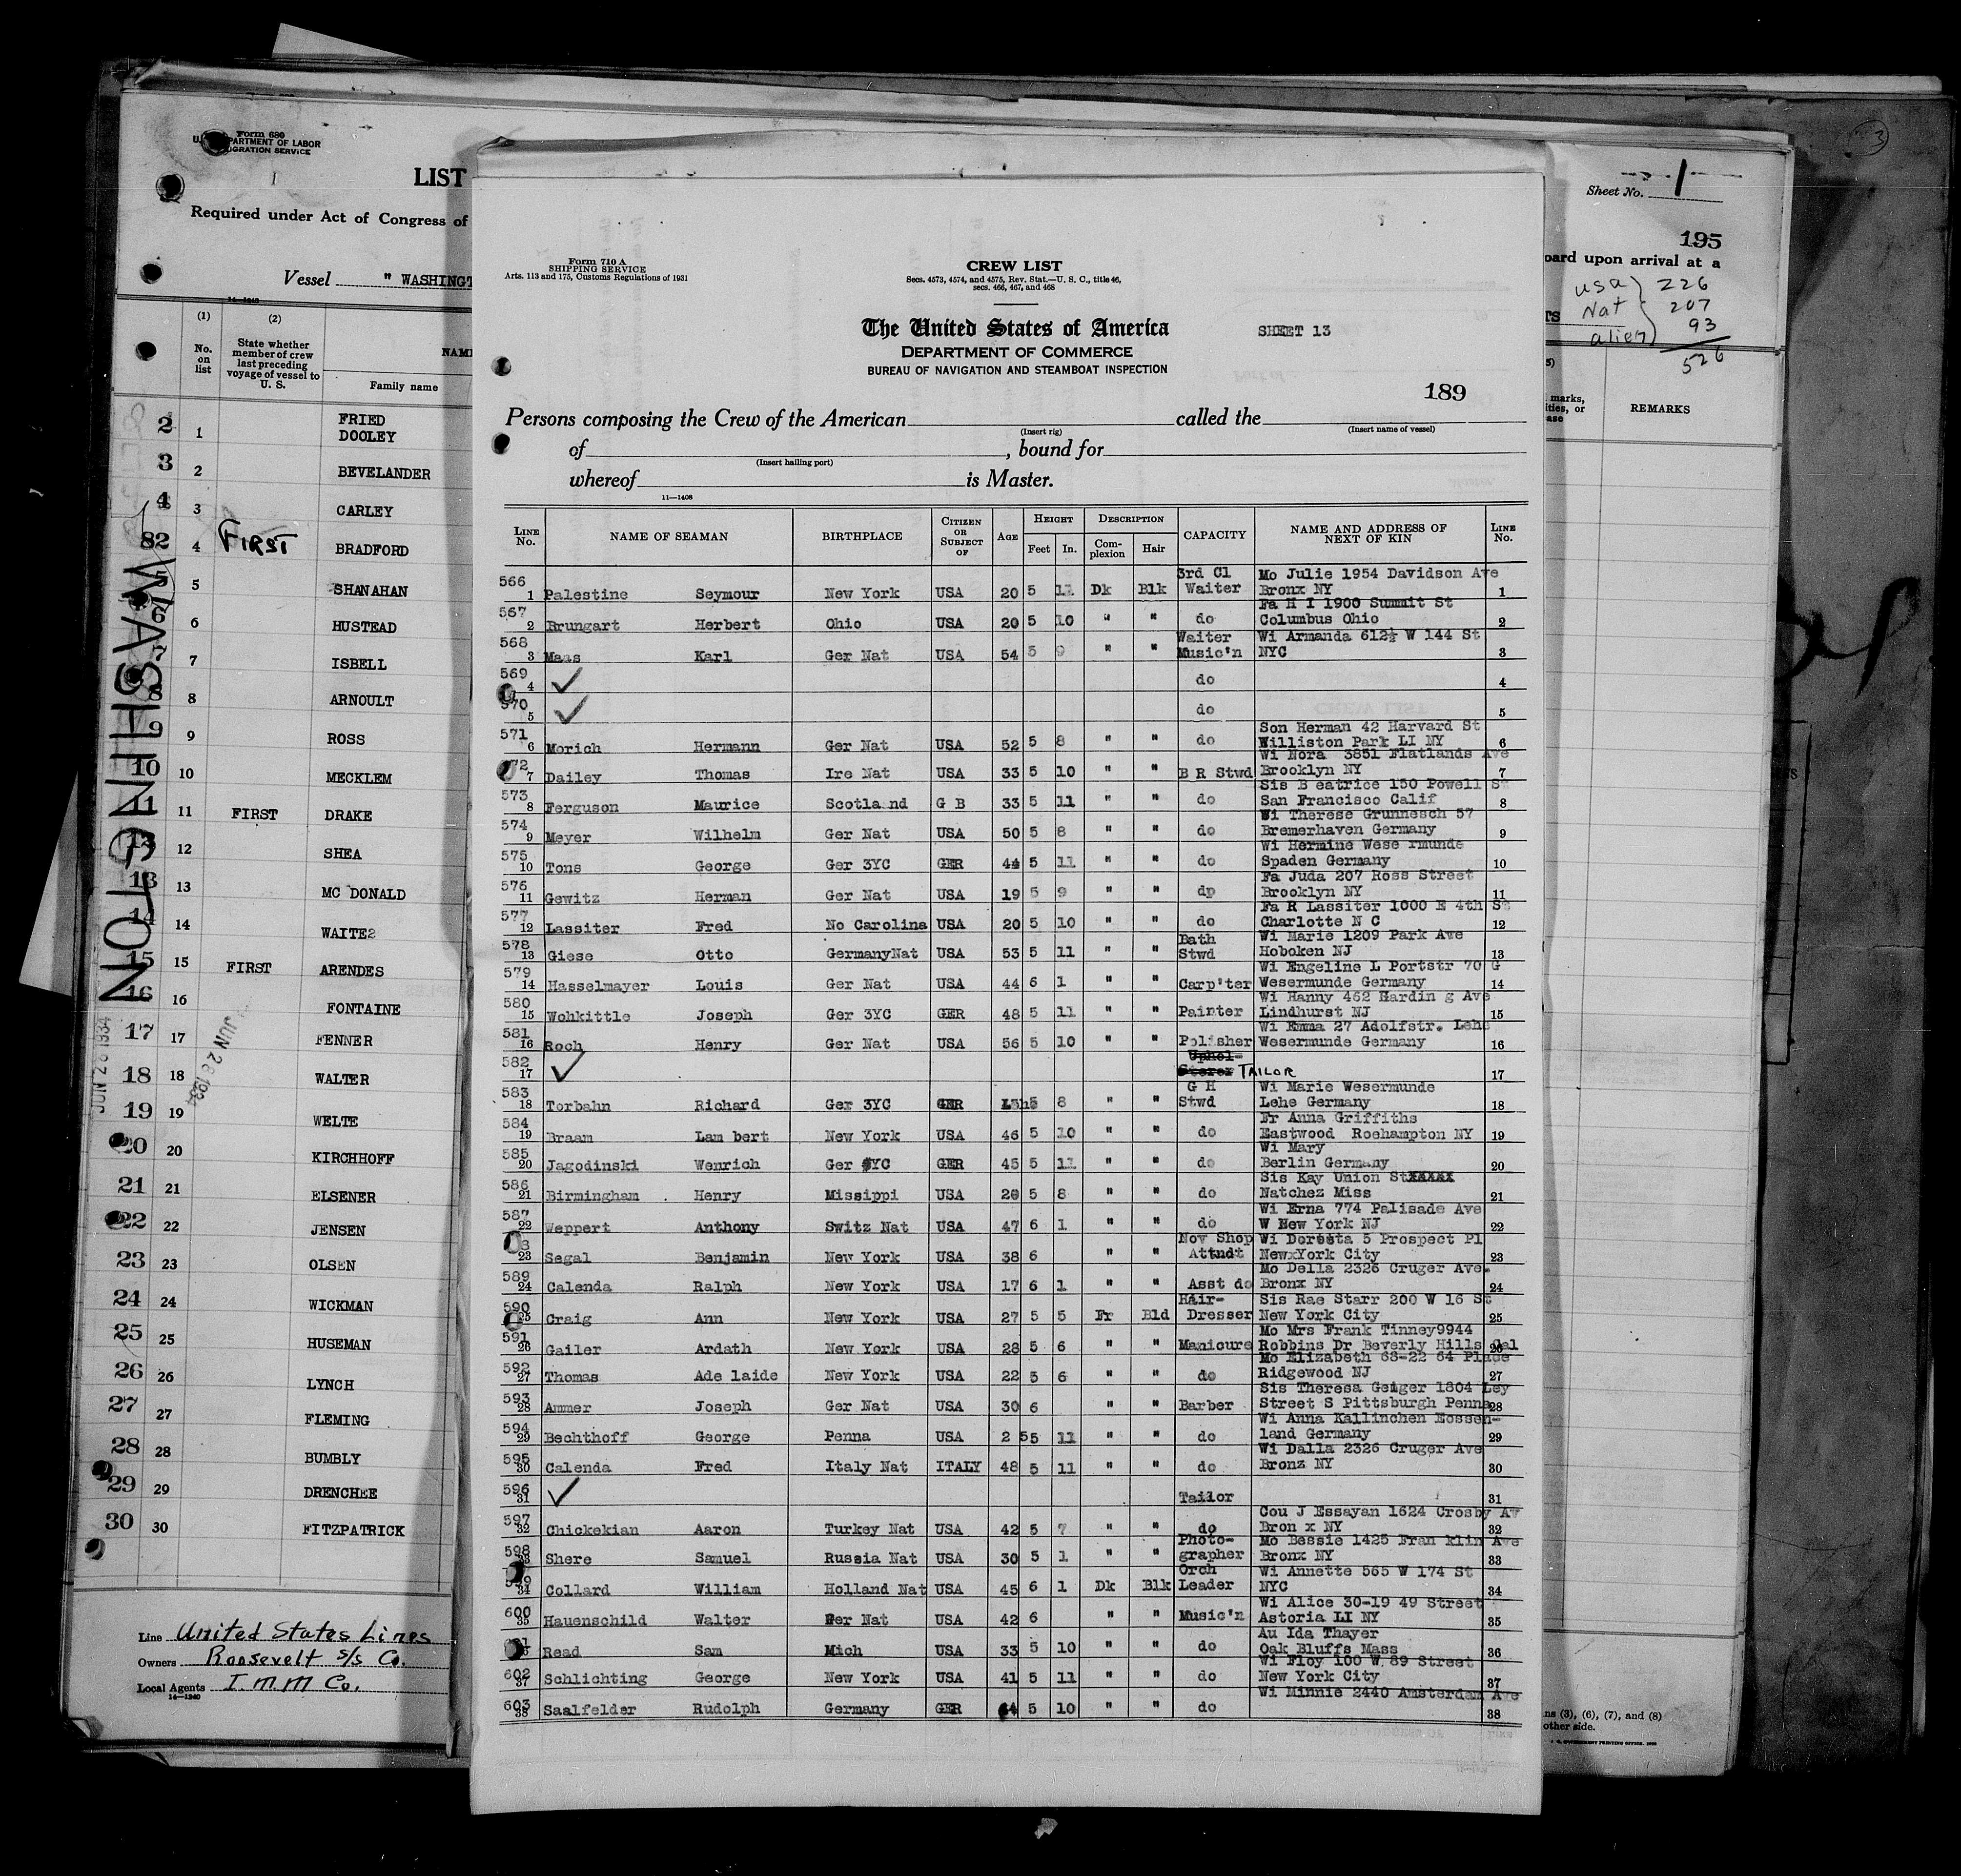 Form 680
U. S. DEPARTMENT OF LABOR
IMMIGRATION SERVICE
LIST
Required under Act of Congress of
Vessel " WASHINGT
14—1240
(1) (2)
No. on list
State whether member of crew last preceding voyage of vessel to U. S.
NAME
Family name
2 1 FRIED
DOOLEY
3 2 BEVELANDER
4 3 CARLEY
82 4 FIRST BRADFORD
5 SHANAHAN
6 HUSTEAD
7 ISBELL
8 8 ARNOULT
9 9 ROSS
10 10 MECKLEM
11 11 FIRST DRAKE
12 SHEA
13 13 MC DONALD
14 14 WAITE
15 15 FIRST ARENDES
16 16 FONTAINE
17 17 FENNER
18 18 WALTER
19 19 WELTE
20 20 KIRCHHOFF
21 21 ELSENER
22 22 JENSEN
23 23 OLSEN
24 24 WICKMAN
25 25 HUSEMAN
26 26 LYNCH
27 27 FLEMING
28 28 BUMBLY
29 29 DRENCHEE
30 30 FITZPATRICK
WASHINGTON
JUN 28 1934
JUN 28 1934
Line United States Lines
Owners Roosevelt S/s Co.
Local Agents I.M.M Co.
14—1240
Form 710 A
SHIPPING SERVICE
Arts. 113 and 175, Customs Regulations of 1931
CREW LIST
Secs. 4573, 4574, and 4575, Rev. Stat.—U. S. C., title 46,
secs. 466, 467, and 468
The United States of America SHEET 13
DEPARTMENT OF COMMERCE
BUREAU OF NAVIGATION AND STEAMBOAT INSPECTION
189
Persons composing the Crew of the American called the
(Insert rig) (Insert name of vessel)
of , bound for
(Insert hailing port)
whereof is Master.
11—1408
LINE No. NAME OF SEAMAN BIRTHPLACE CITIZEN OR SUBJECT OF AGE HEIGHT Feet In. DESCRIPTION Complexion Hair CAPACITY NAME AND ADDRESS OF NEXT OF KIN LINE No.
566 3rd Cl Mo Julie 1954 Davidson Ave
1 Palestine Seymour New York USA 20 5 11 Dk Blk Waiter Bronx NY 1
567 Fa H I 1900 Summit St
2 Brungart Herbert Ohio USA 20 5 10 " " do Columbus Ohio 2
568 Waiter Wi Armanda 612½ W 144 St
3 Maas Karl Ger Nat USA 54 5 9 " " Music'n NYC 3
569
4 ✓ do 4
570
5 ✓ do 5
571 Son Herman 42 Harvard St
6 Morich Hermann Ger Nat USA 52 5 8 " " do Williston Park LI NY 6
72 Wi Nora 3851 Flatlands Ave
7 Dailey Thomas Ire Nat USA 33 5 10 " " B R Stwd Brooklyn NY 7
573 Sis B eatrice 150 Powell St
8 Ferguson Maurice Scotland G B 33 5 11 " " do San Francisco Calif 8
574 Wi Therese Grunnesch 57
9 Meyer Wilhelm Ger Nat USA 50 5 8 " " do Bremerhaven Germany 9
575 Wi Hermine Wese rmunde
10 Tons George Ger 3YC GER 44 5 11 " " do Spaden Germany 10
576 Fa Juda 207 Ross Street
11 Gewitz Herman Ger Nat USA 19 5 9 " " dp Brooklyn NY 11
577 Fa R Lassiter 1000 E 4th St
12 Lassiter Fred No Carolina USA 20 5 10 " " do Charlotte N C 12
578 Bath Wi Marie 1209 Park Ave
13 Giese Otto GermanyNat USA 53 5 11 " " Stwd Hoboken NJ 13
579 Wi Engeline L Portstr 70 G
14 Hasselmayer Louis Ger Nat USA 44 6 1 " " Carp'ter Wesermunde Germany 14
580 Wi Hanny 462 Hardin g Ave
15 Wohkittle Joseph Ger 3YC GER 48 5 11 " " Painter Lindhurst NJ 15
581 Wi Emma 27 Adolfstr. Lehe
16 Roch Henry Ger Nat USA 56 5 10 " " Polisher Wesermunde Germany 16
582 Uphol-
17 ✓ sterer TAILOR 17
583 G H Wi Marie Wesermunde
18 Torbahn Richard Ger 3YC GER 5 8 " " Stwd Lehe Germany 18
584 Fr Anna Griffiths
19 Braam Lam bert New York USA 46 5 10 " " do Eastwood Roehampton NY 19
585 Wi Mary
20 Jagodinski Wenrich Ger YC GER 45 5 11 " " do Berlin Germany 20
586 Sis Kay Union Stxxxxx
21 Birmingham Henry Missippi USA 20 5 8 " " do Natchez Miss 21
587 Wi Erna 774 Palisade Ave
22 Weppert Anthony Switz Nat USA 47 6 1 " " do W New York NJ 22
8 Nov Shop Wi 5 Prospect Pl
23 Segal Benjamin New York USA 38 6 " " Attndt NewxYork City 23
589 Mo Della 2326 Cruger Ave.
24 Calenda Ralph New York USA 17 6 1 " " Asst do Bronx NY 24
590 Hair- Sis Rae Starr 200 W 16 St
25 Craig Ann New York USA 27 5 5 Fr Bld Dresser New York City 25
591 Mo Mrs Frank Tinney9944
26 Gailer Ardath New York USA 28 5 6 " " Manicure Robbins Dr Beverly Hills Cal 26
592 Mo Elizabeth 68-22 64 Place
27 Thomas Ade laide New York USA 22 5 6 " " do Ridgewood NJ 27
593 Sis Theresa Geiger 1804 Ley
28 Ammer Joseph Ger Nat USA 30 6 " " Barber Street S Pittsburgh Penna 28
594 Wi Anna Kallinchen Eossen-
29 Bechthoff George Penna USA 2 5 5 11 " " do land Germany 29
595 Wi Dalla 2326 Cruger Ave
30 Calenda Fred Italy Nat ITALY 48 5 11 " " do Bronz NY 30
596
31 ✓ Tailor 31
597 Cou J Essayan 1624 Crosby Av
32 Chickekian Aaron Turkey Nat USA 42 5 7 " " do Bron x NY 32
598 Photo- Mo Bessie 1425 Fran klin Ave
33 Shere Samuel Russia Nat USA 30 5 1 " " grapher Bronx NY 33
Orch Wi Annette 565 W 174 St
34 Collard William Holland Nat USA 45 6 1 Dk Blk Leader NYC 34
600 Wi Alice 30-19 49 Street
35 Hauenschild Walter Ger Nat USA 42 6 " " Music'n Astoria LI NY 35
Au Ida Thayer
Read Sam Mich USA 33 5 10 " " do Oak Bluffs Mass 36
602 Wi Floy 100 W 89 Street
37 Schlichting George New York USA 41 5 11 " " do New York City 37
603 Wi Minnie 2440 Amsterdam Ave
38 Saalfelder Rudolph Germany GER 5 10 " " do 38
Sheet No. 1
195
oard upon arrival at a
USA 226
Nat 207
alien 93
526
marks,
REMARKS
ns (3), (6), (7), and (8)
other side.
U. S. GOVERNMENT PRINTING OFFICE
3